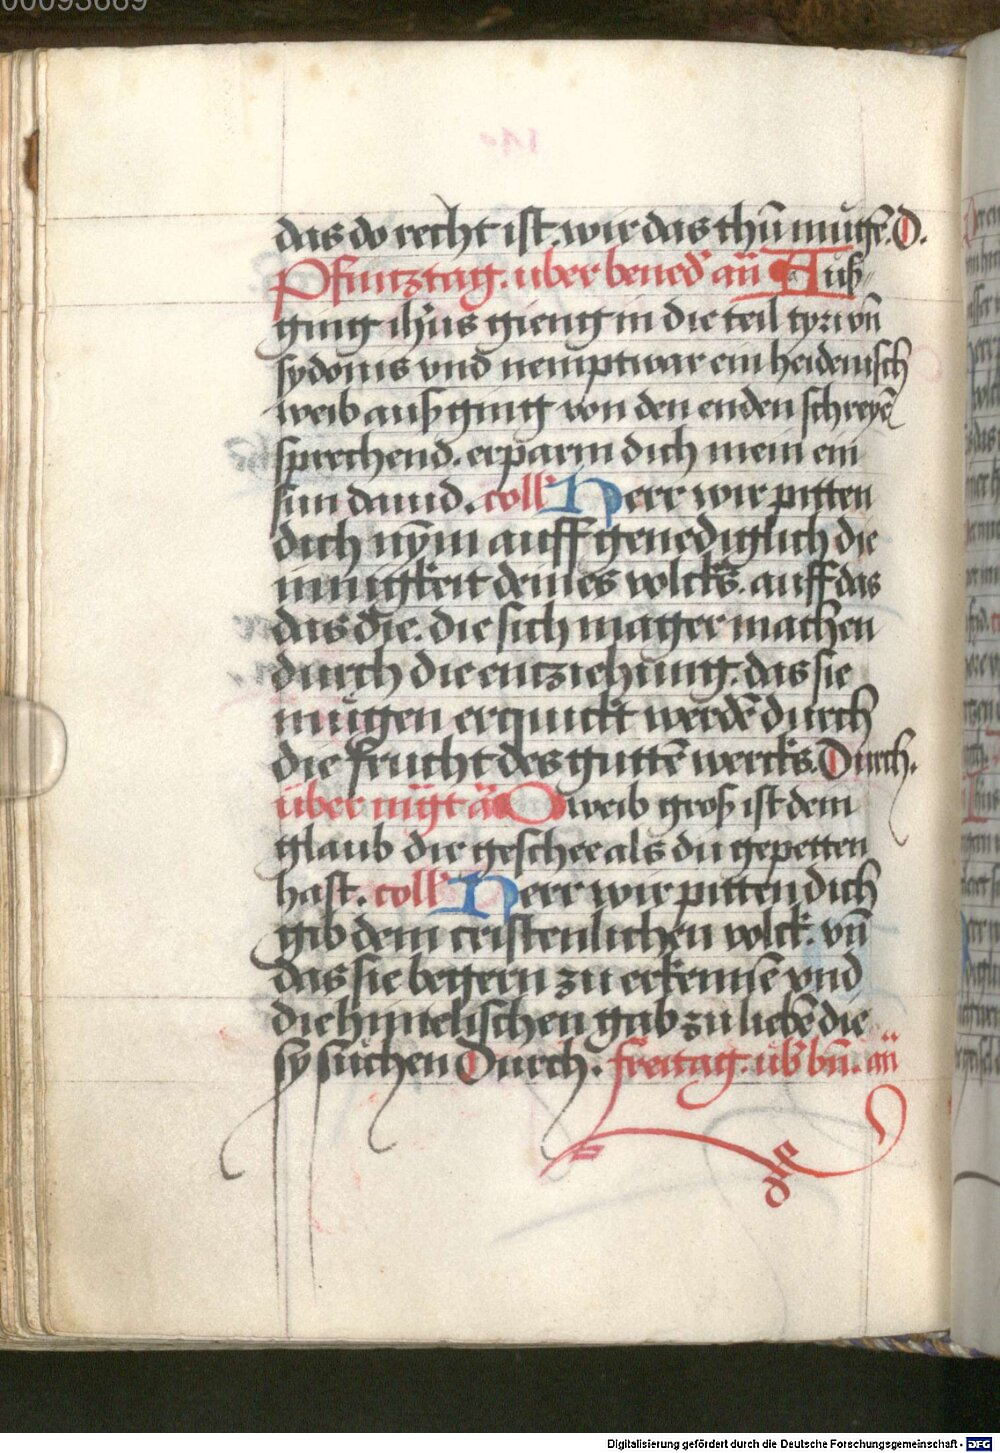 00093669
das do recht ist. wir das thū mugē. D.
Pfintztag. uber bened̄ añ Auß
ging ih̄us gieng in die teil tyri vn̄
sydonis vnd nemptwar ein heidenisch
weib auß ging von den enden schreyē
sprechend. erparm dich mein ein
sun dauid. coll̄ Herr wir pitten
dich nym̄ auff genediglich die
innigkeit deines volcks. auff das
das die. die sich mager machen
durch die entziehung. das sie
mugen erquickt werdē durch
die frucht des guttē wercks. Durch.
über mg̅t a̅ O weib groß ist dein
glaub dir geschee als du gepetten
hast. coll̄ Herr wir pitten dich
gib dem cristenlichen volck. vn̄
das sie begern zu erkennē vnd
die himelischen gab zu liebē die
sy suchen Durch. freitag. ub̄ bn̄. añ
Digitalisierung gefördert durch die Deutsche Forschungsgemeinschaft - DFG